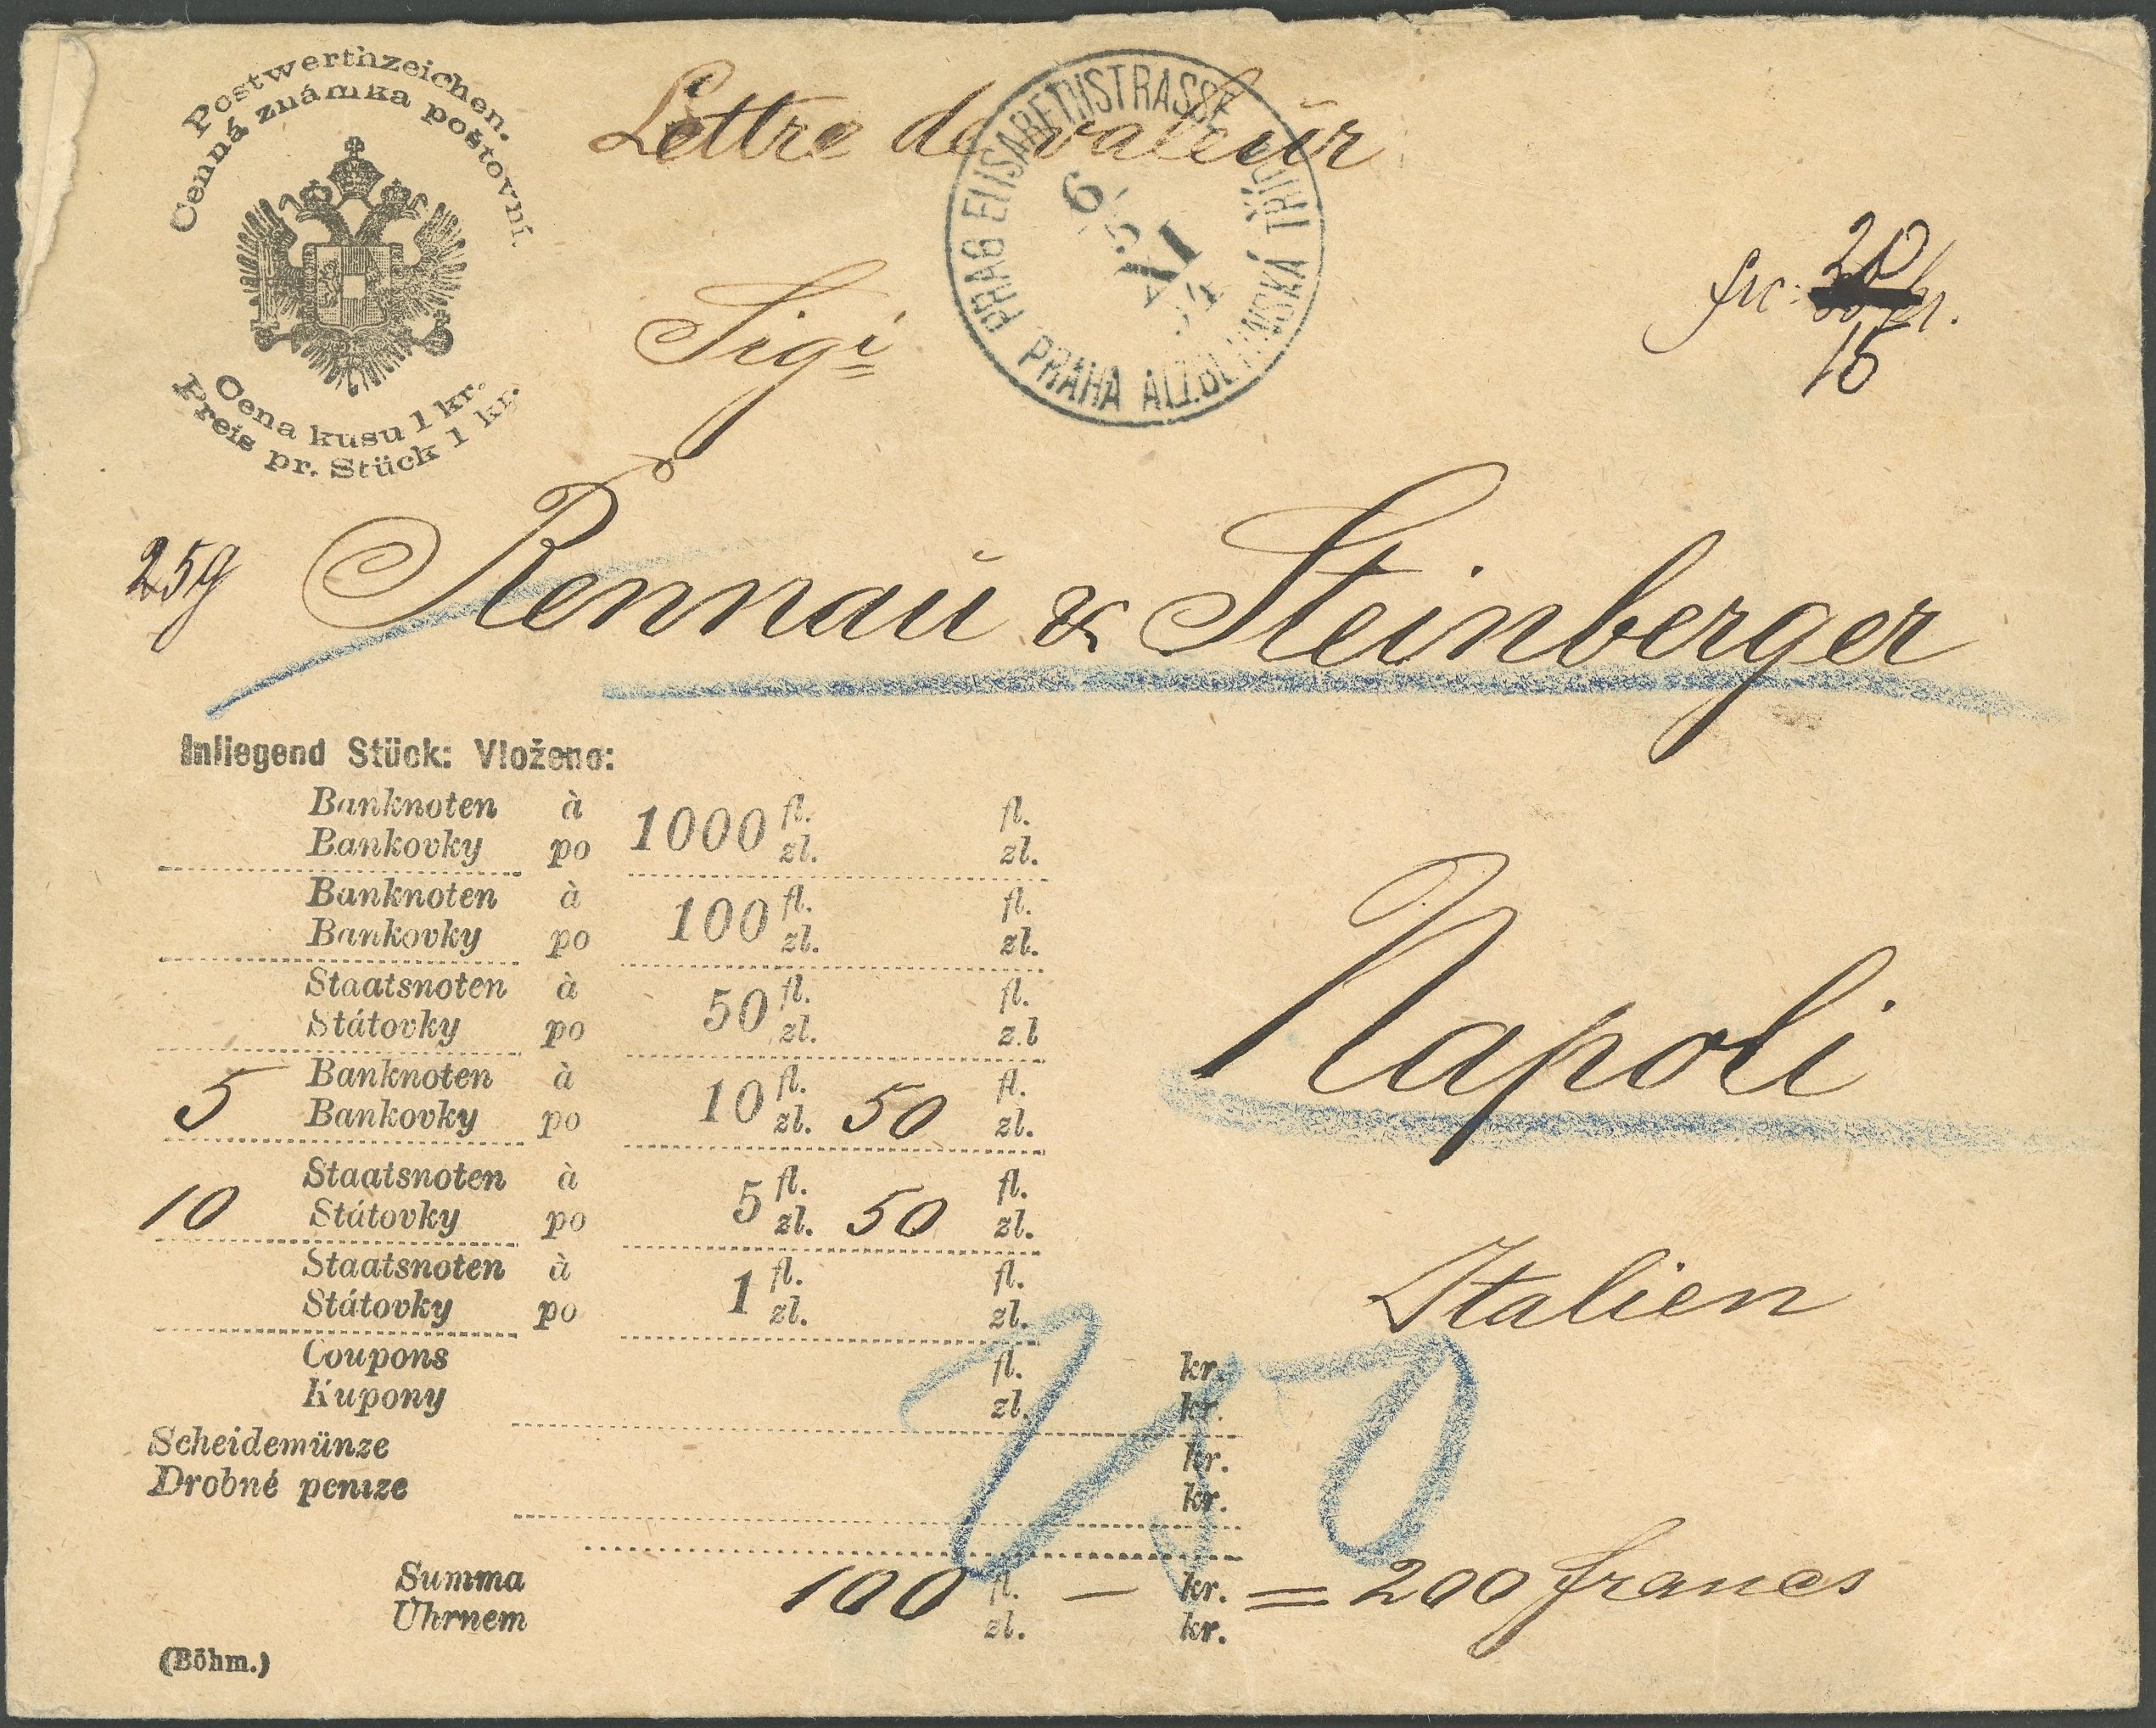 Postwerthzeichen.
Cenná známka poštovní.
Cena kusu 1 kr.
Preis pr. Stück 1 kr.
Lettre de valeur
PRAG ELISABETHSTRASSE
PRAHA ALŽBĚTINSKÁ TŘÍDA
6
XI
frc: 20 kr.
15
25g Rennau & Steinberger
Inliegend Stück: Vloženo:
Banknoten à 1000 fl. fl.
Bankovky po zl. zl.
Banknoten à 100 fl. fl.
Bankovky po zl. zl.
Staatsnoten à 50 fl. fl.
Státovky po zl. z.l
5 Banknoten à 10 fl. 50 fl.
Bankovky po zl. zl.
10 Staatsnoten à 5 fl. 50 fl.
Státovky po zl. zl.
Staatsnoten à 1 fl. fl.
Státovky po zl. zl.
Napoli
Italien
Coupons fl. kr.
Kupony zl. kr.
Scheidemünze kr.
Drobné penıze kr.
Summa 100 fl. — kr. = 200 francs
Úhrnem zl. kr.
(Böhm.)